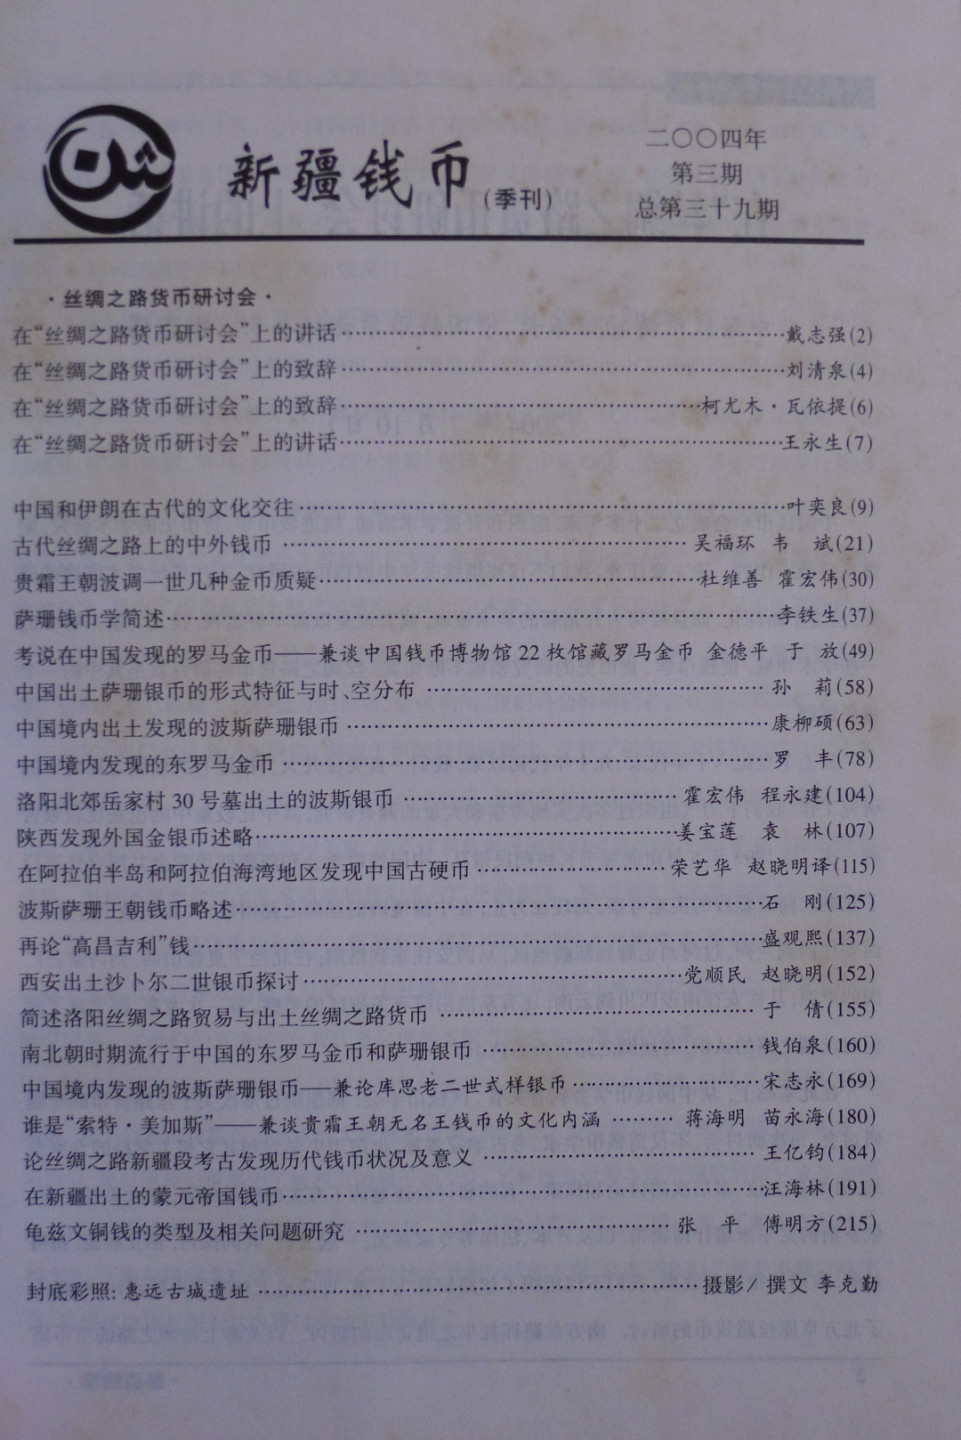 新疆钱币(季刊)
二〇〇四年
第三期
总第三十九期
·丝绸之路货币研讨会·
在“丝绸之路货币研讨会”上的讲话……戴志强(2)
在“丝绸之路货币研讨会”上的致辞……刘清泉(4)
在“丝绸之路货币研讨会”上的致辞……柯尤木·瓦依提(6)
在“丝绸之路货币研讨会”上的讲话……王永生(7)
中国和伊朗在古代的文化交往……叶奕良(9)
古代丝绸之路上的中外钱币……吴福环 韦 斌(21)
贵霜王朝波调一世几种金币质疑……杜维善 霍宏伟(30)
萨珊钱币学简述……李铁生(37)
考说在中国发现的罗马金币——兼谈中国钱币博物馆22枚馆藏罗马金币 金德平 于 放(49)
中国出土萨珊银币的形式特征与时、空分布……孙 莉(58)
中国境内出土发现的波斯萨珊银币……康柳硕(63)
中国境内发现的东罗马金币……罗 丰(78)
洛阳北郊岳家村30号墓出土的波斯银币……霍宏伟 程永建(104)
陕西发现外国金银币述略……姜宝莲 袁 林(107)
在阿拉伯半岛和阿拉伯海湾地区发现中国古硬币……荣艺华 赵晓明译(115)
波斯萨珊王朝钱币略述……石 刚(125)
再论“高昌吉利”钱……盛观熙(137)
西安出土沙卜尔二世银币探讨……党顺民 赵晓明(152)
简述洛阳丝绸之路贸易与出土丝绸之路货币……于 倩(155)
南北朝时期流行于中国的东罗马金币和萨珊银币……钱伯泉(160)
中国境内发现的波斯萨珊银币——兼论库思老二世式样银币……宋志永(169)
谁是“索特·美加斯”——兼谈贵霜王朝无名王钱币的文化内涵……蒋海明 苗永海(180)
论丝绸之路新疆段考古发现历代钱币状况及意义……王亿钧(184)
在新疆出土的蒙元帝国钱币……汪海林(191)
龟兹文铜钱的类型及相关问题研究……张 平 傅明方(215)
封底彩照:惠远古城遗址……摄影/撰文 李克勤